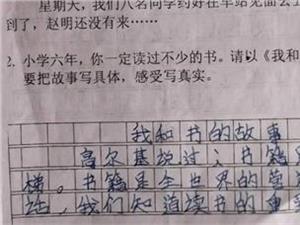 星期天，我们八名同学约好在车站见面去
到了，赵明还没有来……
2. 小学六年，你一定读过不少的书。请以《我和
要把故事写具体，感受写真实。
我和书的故事
高尔基说过：书籍
梯。书籍是全世界的营
我们知道读书的重